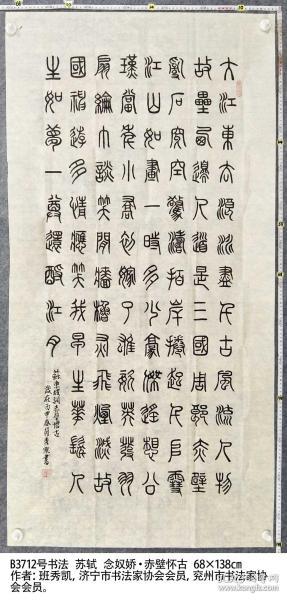 大江東去浪淘盡千古風流人物
故壘西邊人道是三國周郎赤壁
亂石穿空驚濤拍岸捲起千堆雪
江山如畫一時多少豪傑遙想公
瑾當年小喬初嫁了雄姿英發羽
扇綸巾談笑間檣櫓灰飛煙滅故
國神遊多情應笑我早生華髮人
生如夢一尊還酹江月
蘇東坡詞赤壁懷古
歲在丙申春月秀凱書
B3712号书法 苏轼 念奴娇·赤壁怀古 68×138cm
作者: 班秀凯, 济宁市书法家协会会员, 兖州市书法家协
会会员。